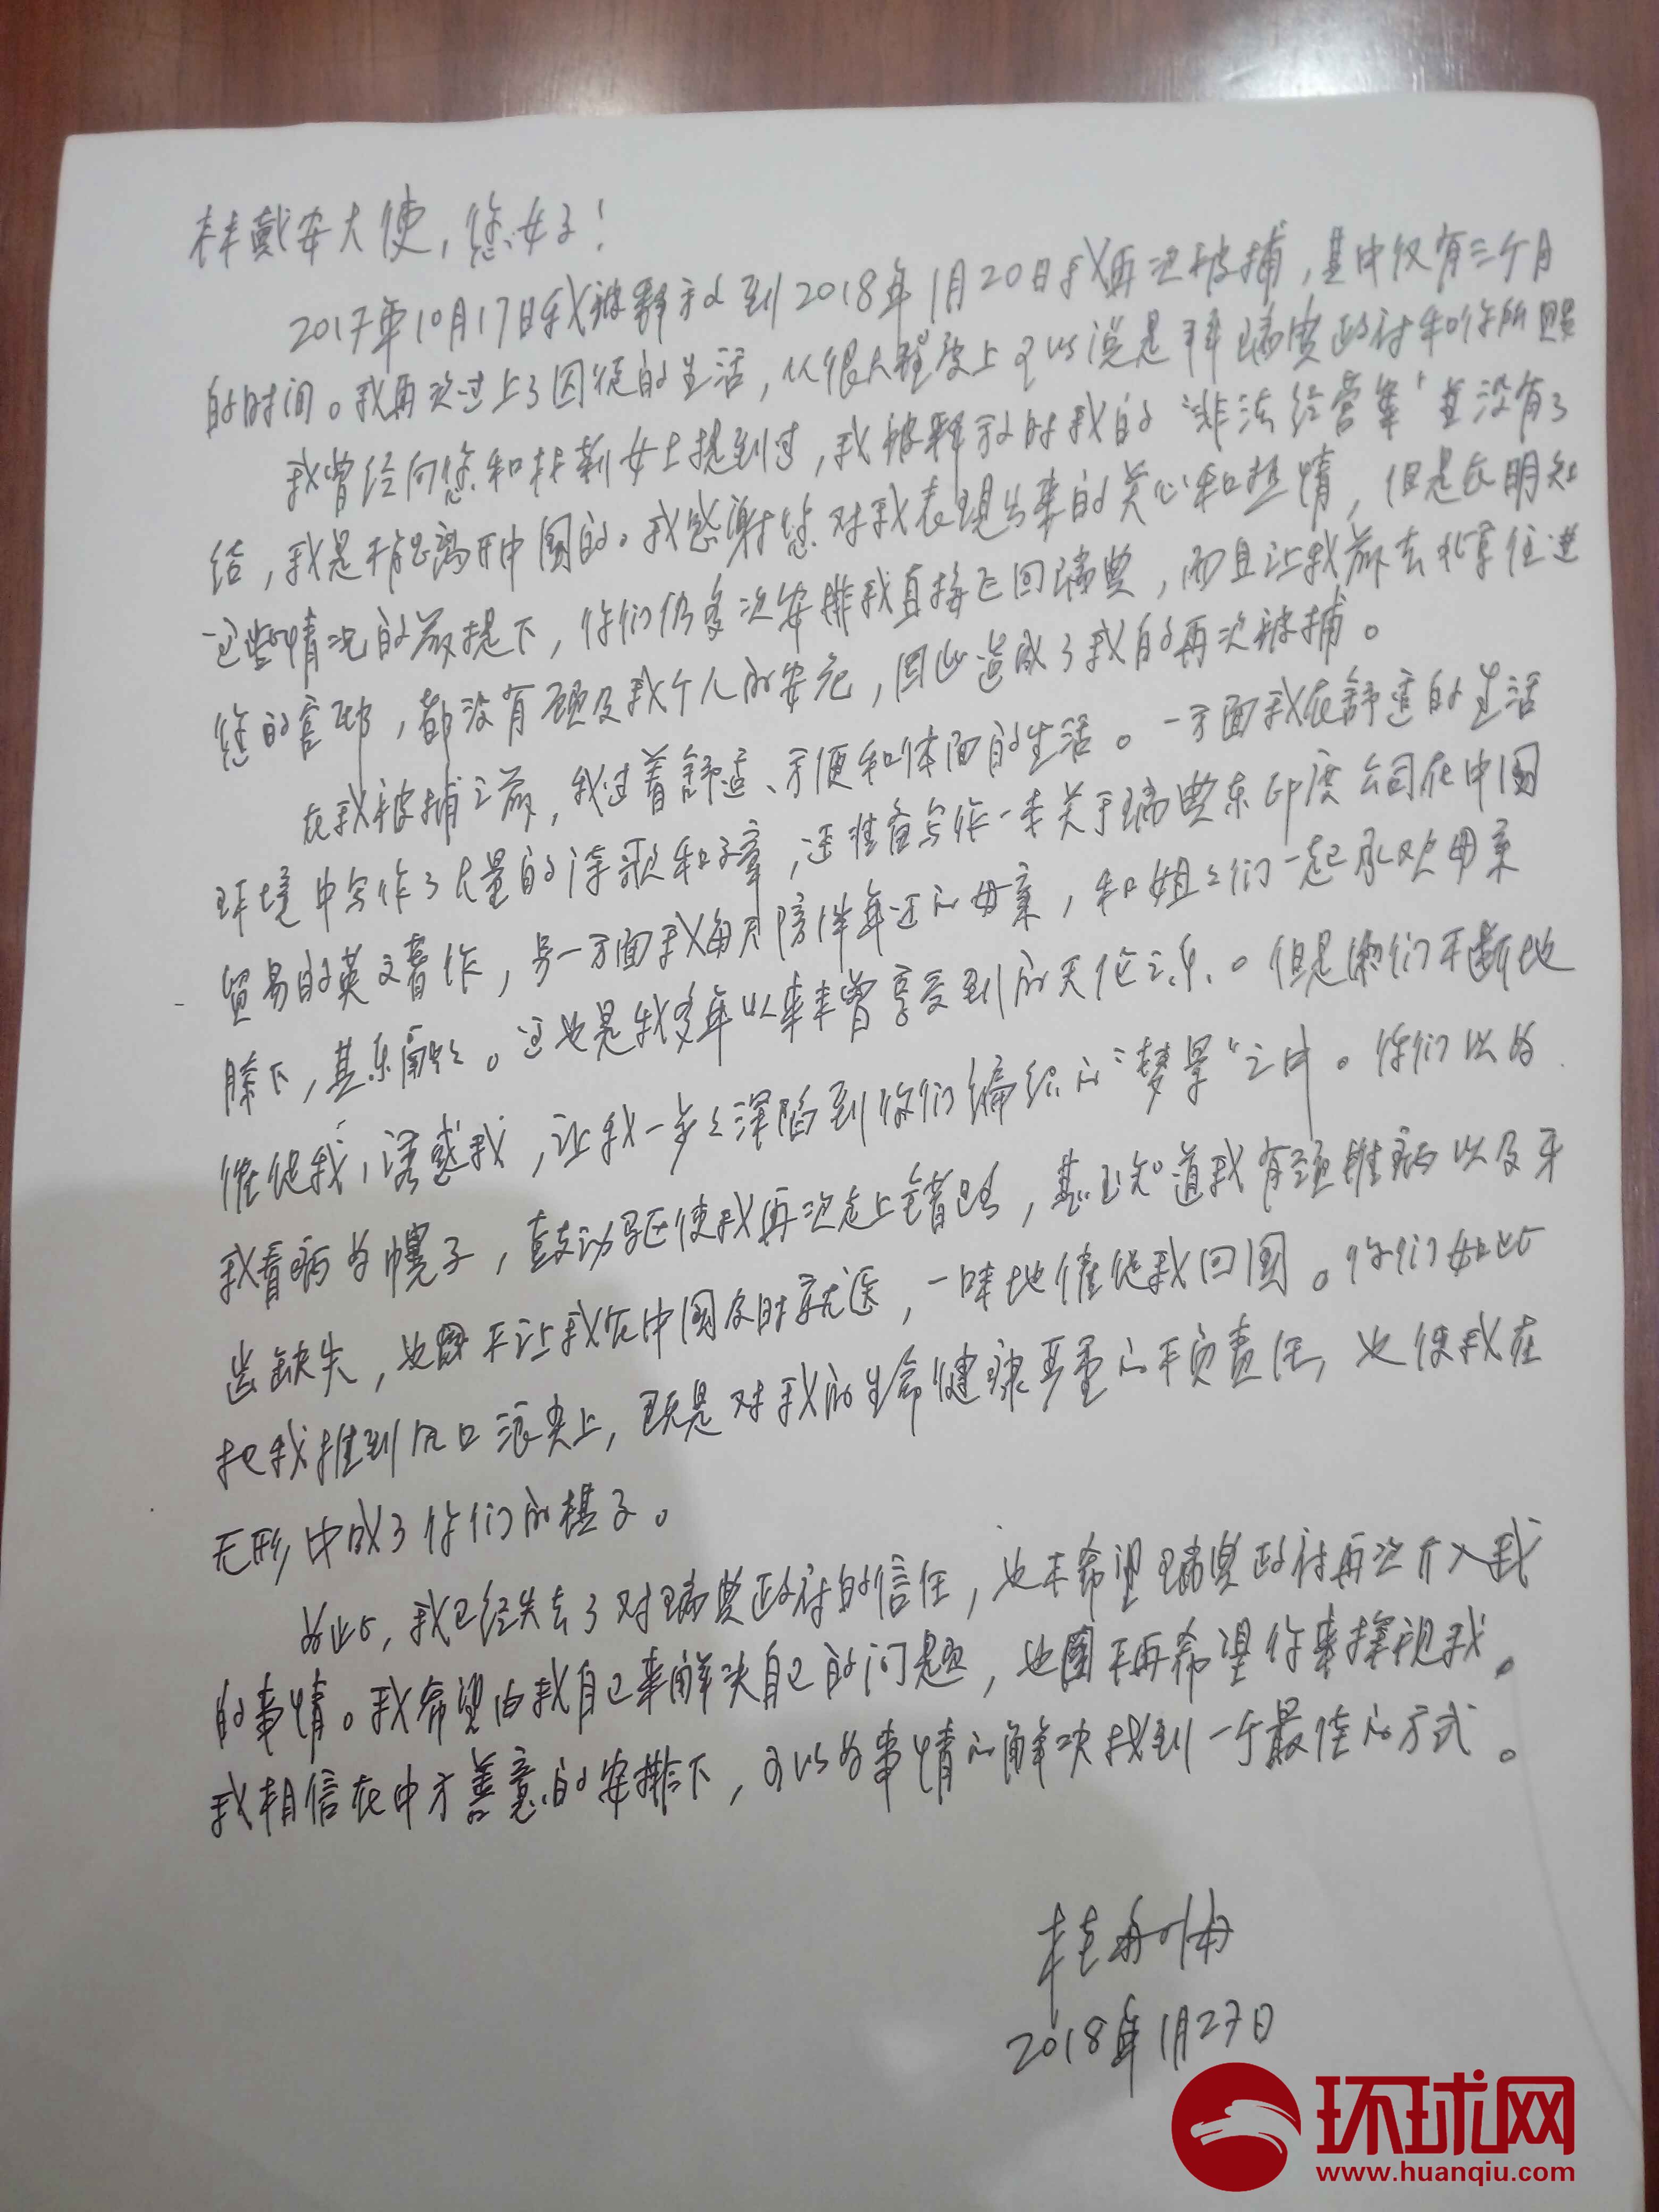 林戴安大使，您好！
2017年10月17日我被释放到2018年1月20日我再次被捕，其中仅有三个月
的时间。我再次过上了囚徒的生活，从很大程度上可以说是拜瑞典政府和你所赐
我曾经向您和林新女士提到过，我被释放时我的“非法经营案”并没有了
结，我是不能离开中国的。我感谢您对我表现出来的关心和热情，但是在明知
这些情况的前提下，你们仍多次安排我直接飞回瑞典，而且让我前去北京住进
您的官邸，都没有顾及我个人的安危，因此造成了我的再次被捕。
在我被捕之前，我过着舒适、方便和体面的生活。一方面我在舒适的生活
环境中写作了大量的诗歌和文章，还准备写作一本关于瑞典东印度公司在中国
贸易的英文著作，另一方面我每天陪伴年迈的母亲，和姐姐们一起承欢母亲
膝下，其乐融融。这也是我多年以来未曾享受到的天伦之乐。但是你们不断地
催促我，诱惑我，让我一步步深陷到你们编织的“梦景”之中。你们以为
我看病为幌子，鼓动驱使我再次走上错路，甚至知道我有颈椎病以及牙
齿缺失，也不让我在中国及时就医，一味地催促我回国。你们如此
把我推到风口浪尖上，既是对我的生命健康严重的不负责任，也使我在
无形中成了你们的棋子。
为此，我已经失去了对瑞典政府的信任，也不希望瑞典政府再次介入我
的事情。我希望由我自己来解决自己的问题，也不再希望你来探视我。
我相信在中方善意的安排下，可以为事情的解决找到一个最佳的方式。
桂敏海
2018年1月27日
环球网
www.huanqiu.com